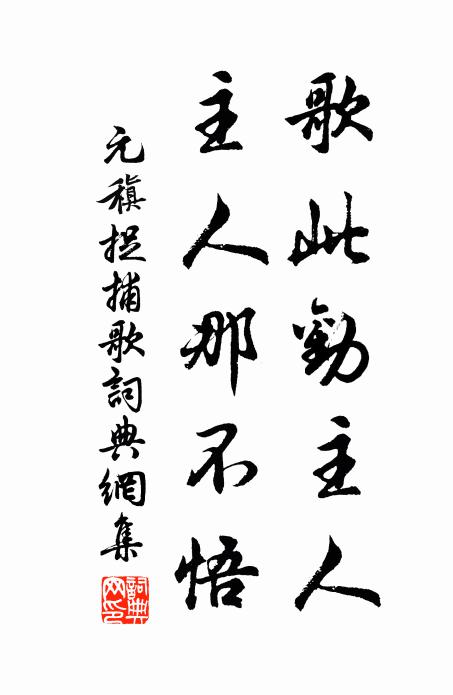 歌此勸主人
主人那不悟
元稹捉捕歌詞典網集
詞典網印